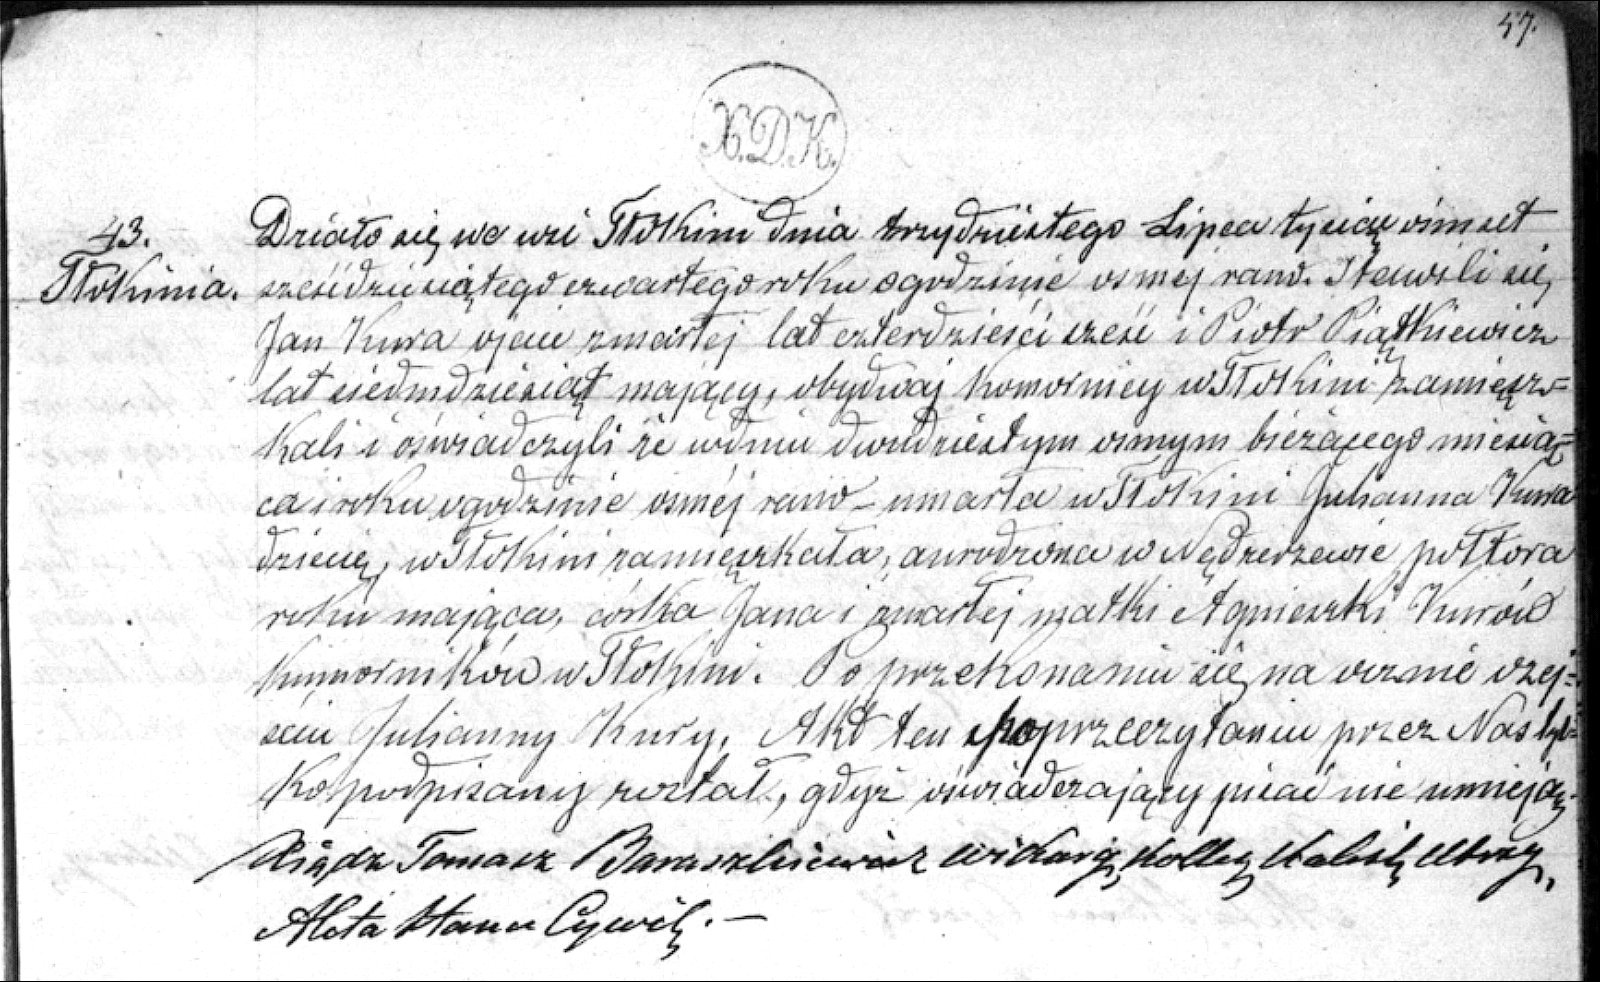 47.
X.D.K.
43.
Tłokinia.
Działo się we wsi Tłokini dnia trzydziestego Lipca tysiąc ośmset
sześćdziesiątego czwartego roku o godzinie osmej rano. Stawili się
Jan Kura ojciec zmarłej lat czterdzieści sześć i Piotr Piątkiewicz
lat siedmdziesiąt mający, obydwaj Komornicy w Tłokini zamięsz=
kali i oświadczyli że w dniu dwudziestym osmym bieżącego miesią=
ca i roku o godzinie osméj rano – umarła w Tłokini Julianna Kura
dziecię, w Tłokini zamięszkała, a urodzona w Nędzerzewie półtora
roku mająca, córka Jana i zmarłej matki Agnieszki Kurów
Komorników w Tłokini. Po przekonaniu się na ocznie o zej=
ściu Julianny Kury, Akt ten po przeczytaniu przez Nas tyl=
ko podpisany został, gdyż oświadczający pisać nie umieją.
Ksiądz Tomasz
Akta Stanu Cywil. –